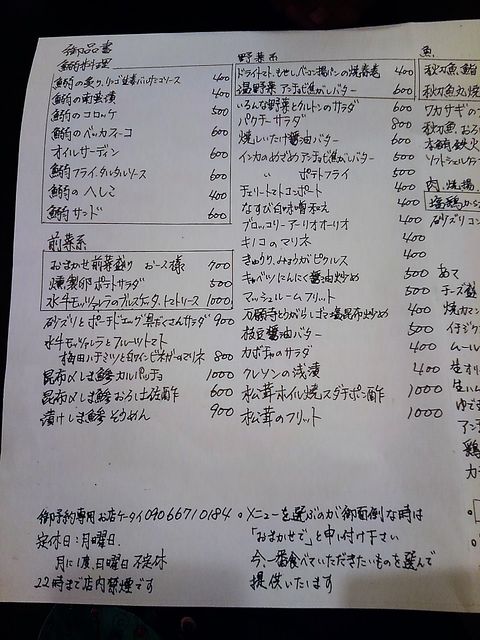 御品書
鰯料理
鰯の炙り、リンゴ生姜バルサミコソース 400
鰯の南蛮漬 400
鰯のコロッケ 500
鰯のベッカフィーコ 600
オイルサーディン 600
鰯フライ、タルタルソース 600
鰯のへしこ 400
鰯サンド 600
前菜系
おまかせ前菜盛り お一人様 700
燻製卵ポテトサラダ 500
水牛モッツァレラのブルスケッタ、トマトソース 1000
砂ズリとポーチドエッグ 具だくさんサラダ 900
水牛モッツァレラとフルーツトマト
梅田ハチミツと白ワインビネガーのマリネ 800
昆布〆しま鯵カルパッチョ 1000
昆布〆しま鯵おろし土佐酢 600
漬けしま鯵そうめん 900
野菜系
ドライトマト、もやし、ベーコン揚パンの焼春巻 400
温野菜 アンチョビ焦がしバター 600
いろんな野菜とクルトンのサラダ 600
パクチーサラダ 800
焼しいたけ醤油バター 600
インカのめざめアンチョビ焦がしバター 600
〃 ポテトフライ 500
チェリートマトコンポート 400
なすび白味噌和え 400
ブロッコリーアーリオオーリオ 400
キノコのマリネ 400
きゅうり、みょうがピクルス 400
キャベツにんにく醤油炒め 500
マッシュルームフリット 500
万願寺とうがらしゴマ塩昆布炒め 400
枝豆醤油バター 500
カボチャのサラダ 400
クレソンの浅漬 400
松茸ホイル焼、スダチポン酢 1000
松茸のフリット 1000
魚
秋刀魚、鰯
秋刀魚丸焼
ワカサギの
秋刀魚、おろ
本鮪鉄火
ソフトシェルクラ
肉、焼揚
塩鶏から
砂ズリコン
あて
チーズ盛
焼カマン
イチジク
ムール
生すり
生ハム
ゆで
アン
鶏
カラ
御予約専用お店ケータイ09066710184
定休日:月曜日、
月に1度、日曜日 不定休
22時まで店内禁煙です
○メニューを選ぶのが御面倒な時は
「おまかせで」と申し付け下さい
今、一番食べていただきたいものを選んで
提供いたします